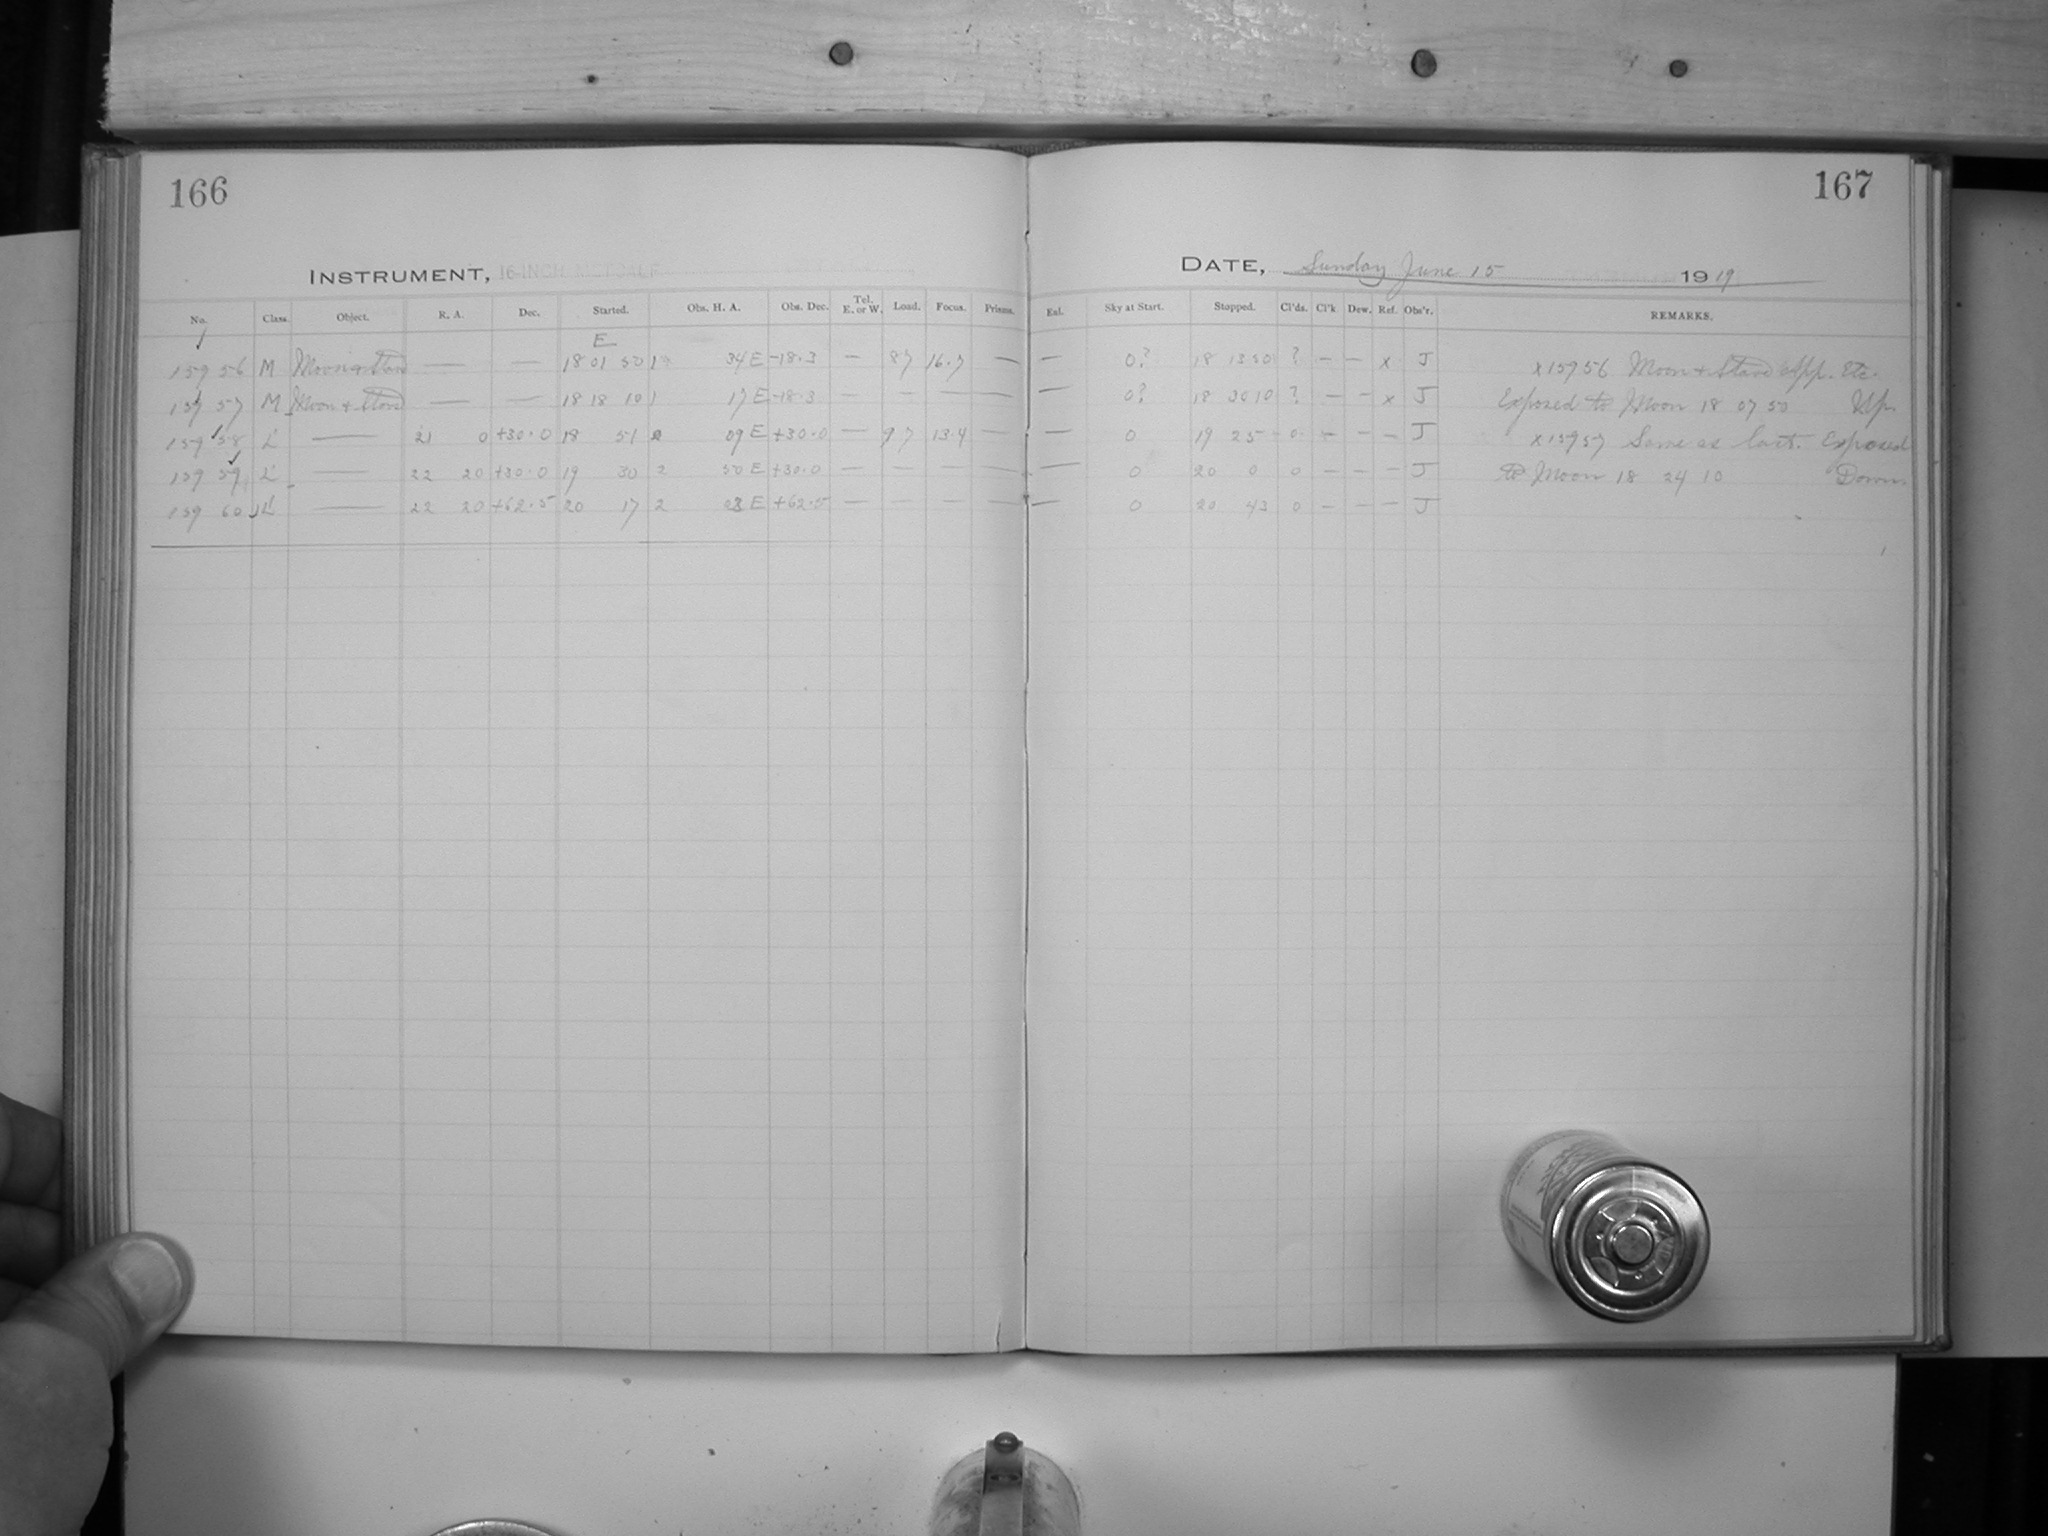 166
INSTRUMENT, 16-INCH METCALF
No. Class. Object. R. A. Dec. Started. Obs. H. A. Obs. Dec. Tel. E. or W. Load. Focus. Prisms.
E
159 56 M Moon + Stars — — 18 01 50 1 34 E -18.3 — 87 16.7 —
159 57 M Moon + Stars — — 18 18 10 1 17 E -18.3 — — — —
159 58 L — 21 0 +30.0 18 51 2 09 E +30.0 — 97 13.4 —
159 59 L — 22 20 +30.0 19 30 2 50 E +30.0 — — — —
159 60 L — 22 20 +62.5 20 17 2 03 E +62.5 — — — —
167
DATE, Sunday June 15 1919
Exl. Sky at Start. Stopped. Cl'ds. Cl'k Dew. Ref. Obs'r. REMARKS.
— 0? 18 13 50 ? — — x J x15956 Moon + Stars App. Etc.
— 0? 18 30 10 ? — — x J Exposed to Moon 18 07 50 Up.
— 0 19 25 0 — — — J x15957 Same as last. Exposed
— 0 20 0 0 — — — J to Moon 18 24 10 Down.
— 0 20 43 0 — — — J